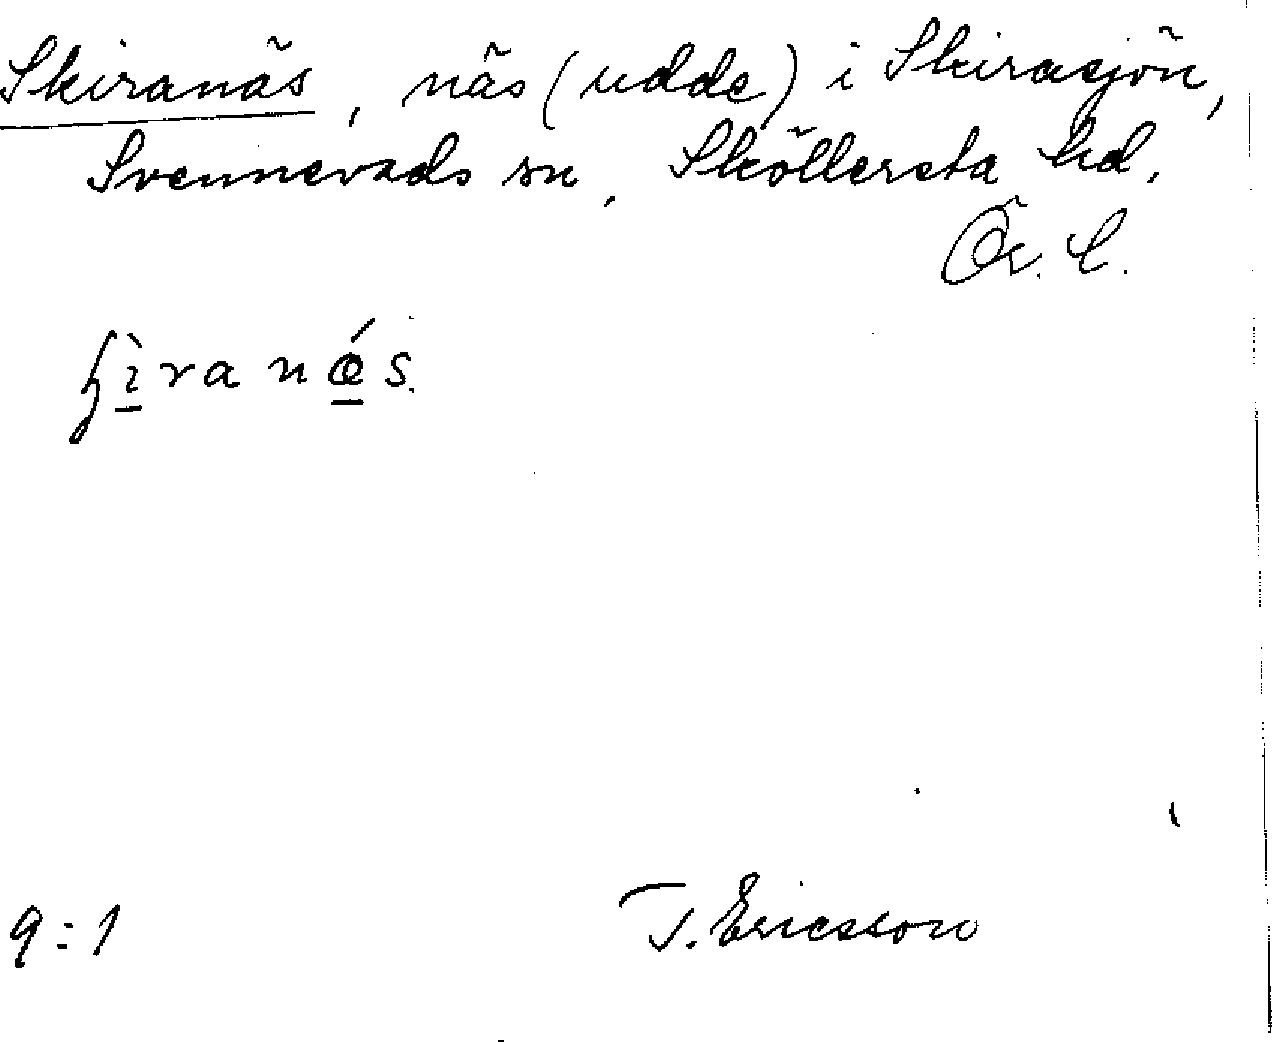 Skiranäs, näs (udde) i Skirasjön,
Svennevads sn, Sköllersta hd,
Ör. l.
9:1
T. Ericsson